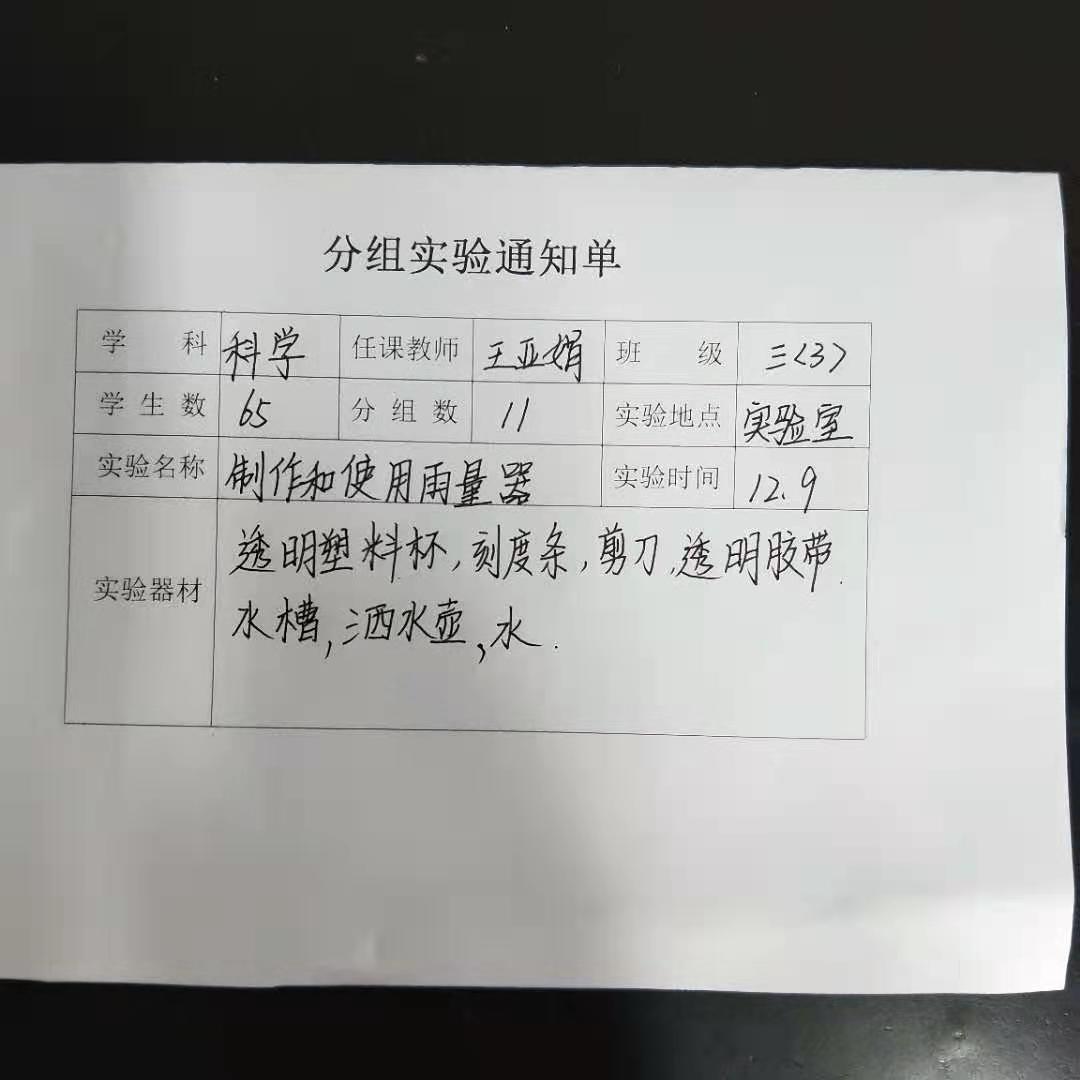 分组实验通知单
学 科 科学 任课教师 王亚娟 班 级 三<3>
学生数 65 分组数 11 实验地点 实验室
实验名称 制作和使用雨量器 实验时间 12.9
实验器材 透明塑料杯,刻度条,剪刀,透明胶带.
水槽,洒水壶,水.